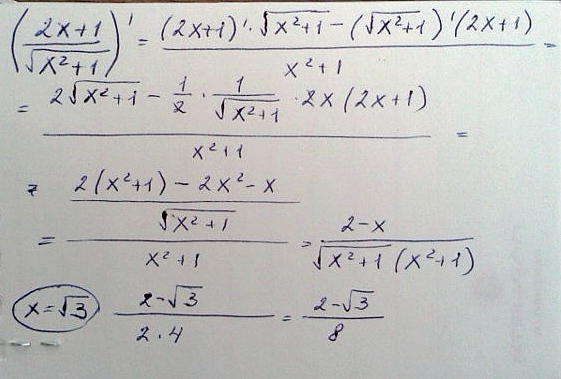 ((2x+1)/(√(x²+1)))' = ((2x+1)'·√(x²+1) - (√(x²+1))'(2x+1))/(x²+1) =
= (2√(x²+1) - 1/2 · 1/√(x²+1) · 2x(2x+1))/(x²+1) =
= ((2(x²+1) - 2x² - x)/√(x²+1))/(x²+1) = (2-x)/(√(x²+1)(x²+1))
x=√3 (2-√3)/(2·4) = (2-√3)/8